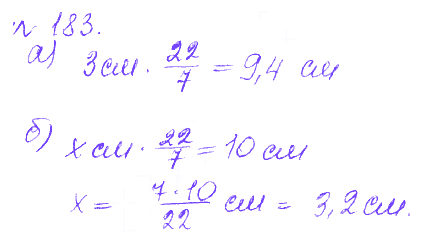 № 183.
а) 3 см · 22/7 = 9,4 см
б) x см · 22/7 = 10 см
x = 7 · 10/22 см = 3,2 см.